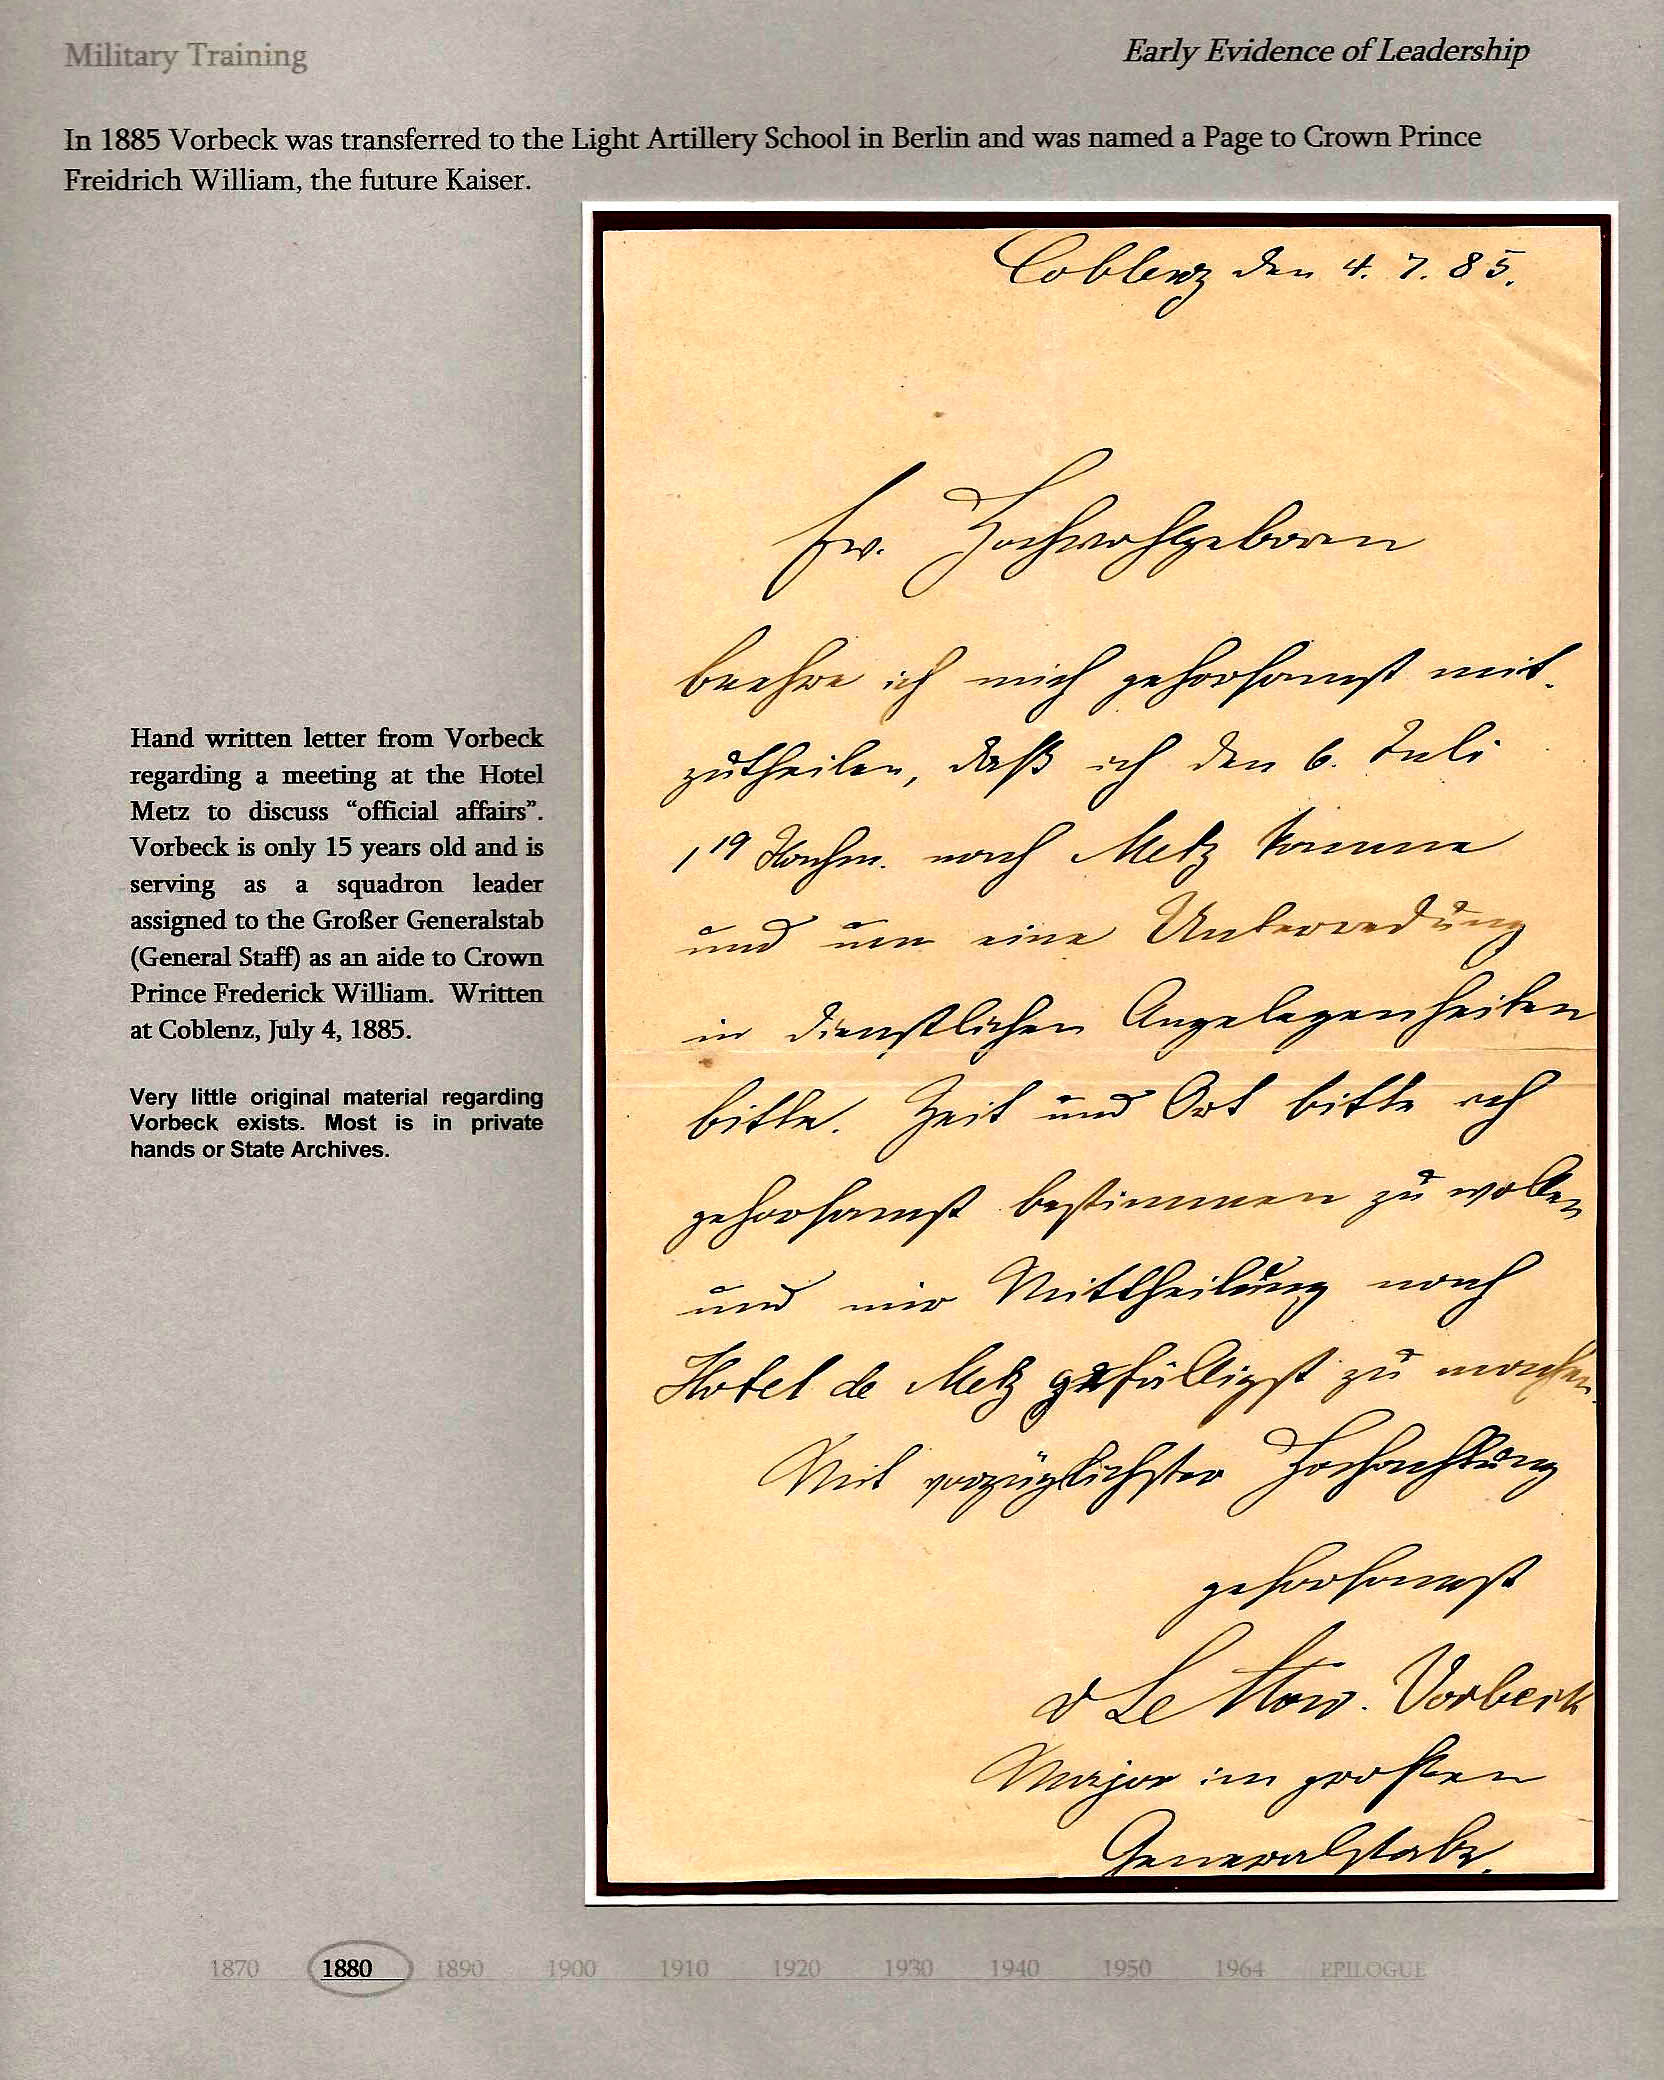 Military Training
Early Evidence of Leadership
In 1885 Vorbeck was transferred to the Light Artillery School in Berlin and was named a Page to Crown Prince
Freidrich William, the future Kaiser.
Hand written letter from Vorbeck
regarding a meeting at the Hotel
Metz to discuss “official affairs”.
Vorbeck is only 15 years old and is
serving as a squadron leader
assigned to the Großer Generalstab
(General Staff) as an aide to Crown
Prince Frederick William. Written
at Coblenz, July 4, 1885.
Very little original material regarding
Vorbeck exists. Most is in private
hands or State Archives.
Coblenz den 4. 7. 85.
Ew. Hochwohlgeboren
beehre ich mich gehorsamst mit-
zutheilen, daß ich den 6. Juli
1 19 Nachm. nach Metz komme
und um eine Unterredung
in dienstlichen Angelegenheiten
bitte. Zeit und Ort bitte ich
gehorsamst bestimmen zu wollen
und mir Mittheilung nach
Hotel de Metz gefälligst zu machen.
Mit vorzüglichster Hochachtung
gehorsamst
v Lettow-Vorbeck
Major im großen
Generalstabe.
1870 1880 1890 1900 1910 1920 1930 1940 1950 1964 EPILOGUE